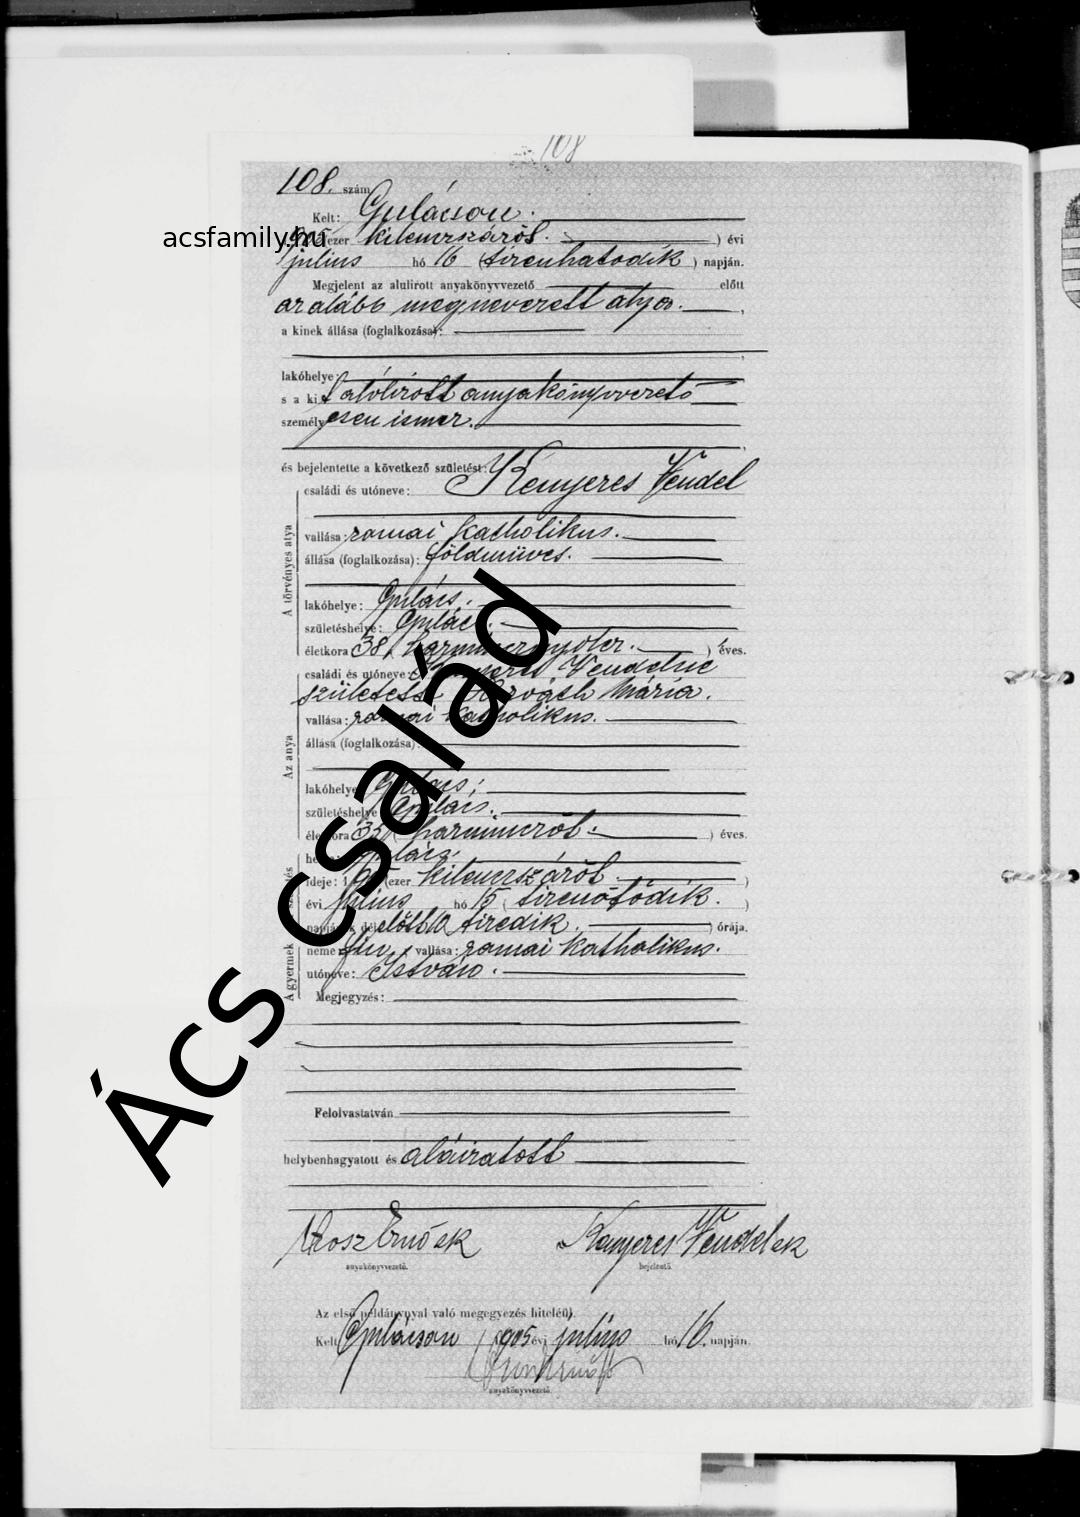 108
108. szám
Kelt: Gulácson.
acsfamily.hu
905 ezer kilenczszáröt. ) évi
julius hó 16 (tizenhatodik ) napján.
Megjelent az alulirott anyakönyvvezető előtt
az alább megnevezett atya. ,
a kinek állása (foglalkozása):
lakóhelye:
s a kit alólirott anyakönyvvezető
személyesen ismer.
és bejelentette a következő születést:
családi és utóneve: Kenyeres Vendel
A törvényes atya
vallása: romai katholikus.
állása (foglalkozása): földmüves.
lakóhelye: Gulács.
születéshelye: Gulács.
életkora 38, ( ) éves.
Az anya
családi és utóneve: Kenyeres Vendelné
született Horváth Mária.
vallása: romai katholikus.
állása (foglalkozása):
lakóhelye: Gulács;
születéshelye Gulács.
életkora 35, (harminczöt. ) éves.
A gyermek
Gulács.
ideje: 1905 (ezer kilenczszáröt )
évi julius hó 15 (tizenötödik. )
napján délelőtt 10 tizedik órája.
neme fiu, vallása: romai katholikus.
utóneve: István.
Megjegyzés:
Felolvastatván
helybenhagyatott és aláiratott
Ernő sk Kenyeres Vendel sk
anyakönyvvezető. bejelentő.
Az első példánynyal való megegyezés hiteléül.
Kelt Gulácson 1905 évi julius hó 16. napján.
anyakönyvvezető.
Ács család